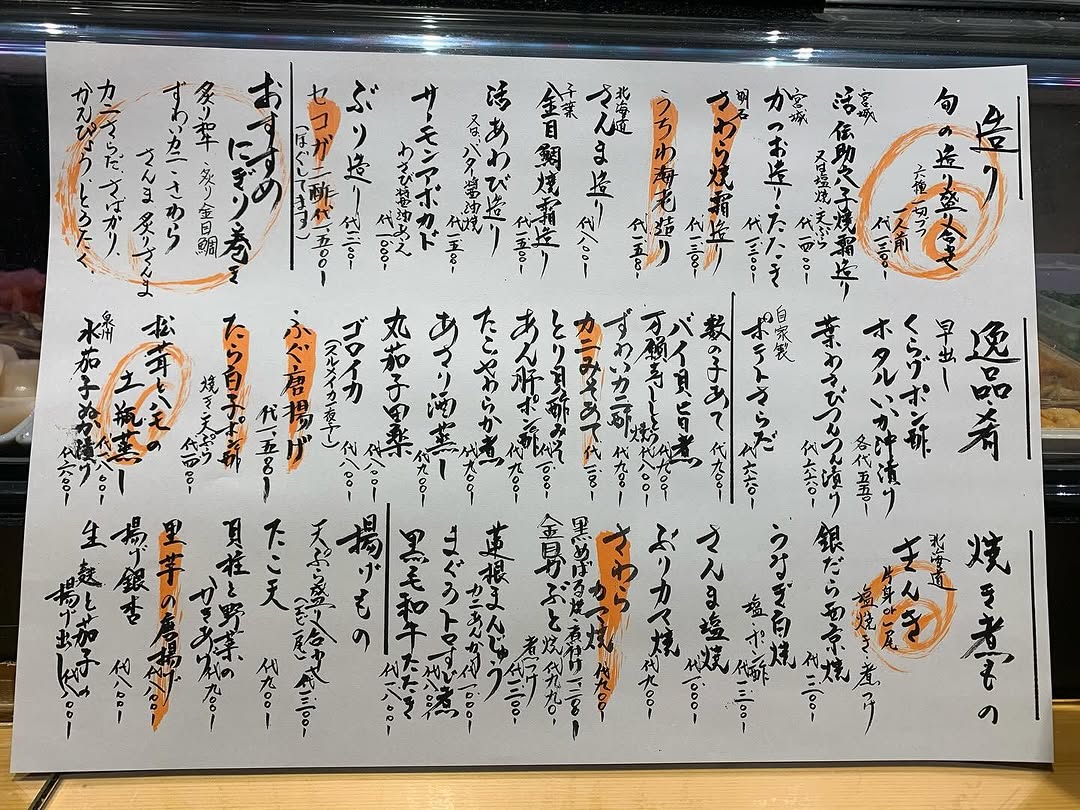 造り
旬の造り盛り合せ
六種一切づつ
一人前
代一三〇〇
宮城
活伝助穴子焼霜造り
又は塩焼 天ぷら
代一四〇〇
宮城
かつお造り・たたき
代一三〇〇
明石
さわら焼霜造り
代一三〇〇
うちわ海老造り
代一五〇〇
北海道
さんま造り
代一八〇〇
千葉
金目鯛焼霜造り
代一五〇〇
活あわび造り
又は、バタ醤油焼
代一五〇〇
サーモンアボカド
わさび醤油あえ
代一〇〇〇
ぶり造り
代一二〇〇
セコガニ酢 代一、五〇〇
(ほぐしてます)
おすすめ
にぎり・巻き
炙り和牛 炙り金目鯛
ずわいカニ・さわら
さんま 炙りさんま
カニさらだ、さばがり、
かんぴょう とろたく、
逸品肴
早出し
くらげポン酢
ホタルいか沖漬り
各代五五〇
葉わさびつんつん漬り
代六六〇
自家製
ポテトさらだ
代六六〇
数の子あて
代九〇〇
バイ貝旨煮
代九〇〇
万願寺ししとう焼
代八〇〇
ずわいカニ酢
代九〇〇
カニみそあて
代一一〇〇
とり貝酢みそ
代一〇〇〇
あん肝ポン酢
代九〇〇
たこやわらか煮
代九〇〇
あさり酒蒸し
代九〇〇
丸茄子田楽
代九〇〇
ゴロイカ
(スルメイカ一夜干し)
代八〇〇
ふぐ唐揚げ
代一、五〇〇
たら白子ポン酢
焼き・天ぷら
代一四〇〇
松茸とハモの
土瓶蒸し
代一八〇〇
泉州
水茄子ぬか漬け
代六〇〇
焼き煮もの
北海道
きんき
片身か一尾
塩焼き・煮つけ
銀だら西京焼
代一三〇〇
うなぎ白焼
塩・ポン酢
代一三〇〇
さんま塩焼
代一〇〇〇
ぶりカマ焼
代一〇〇〇
さわらカマ焼
代九〇〇
黒めばる焼・煮付け 一二〇〇
金目かぶと 焼 代九九〇
煮つけ
代一二〇〇
蓮根まんじゅう
カニあんかけ
代一〇〇〇
まぐろトロすじ煮
代八〇〇
黒毛和牛たたき
代一八〇〇
揚げもの
天ぷら盛り合わせ 代一三〇〇
(えび一尾)
たこ天
代九〇〇
貝柱と野菜の
かきあげ
代九〇〇
里芋の唐揚げ
代八〇〇
揚げ銀杏
代八〇〇
生麩と茄子の
揚げ出し
代八〇〇